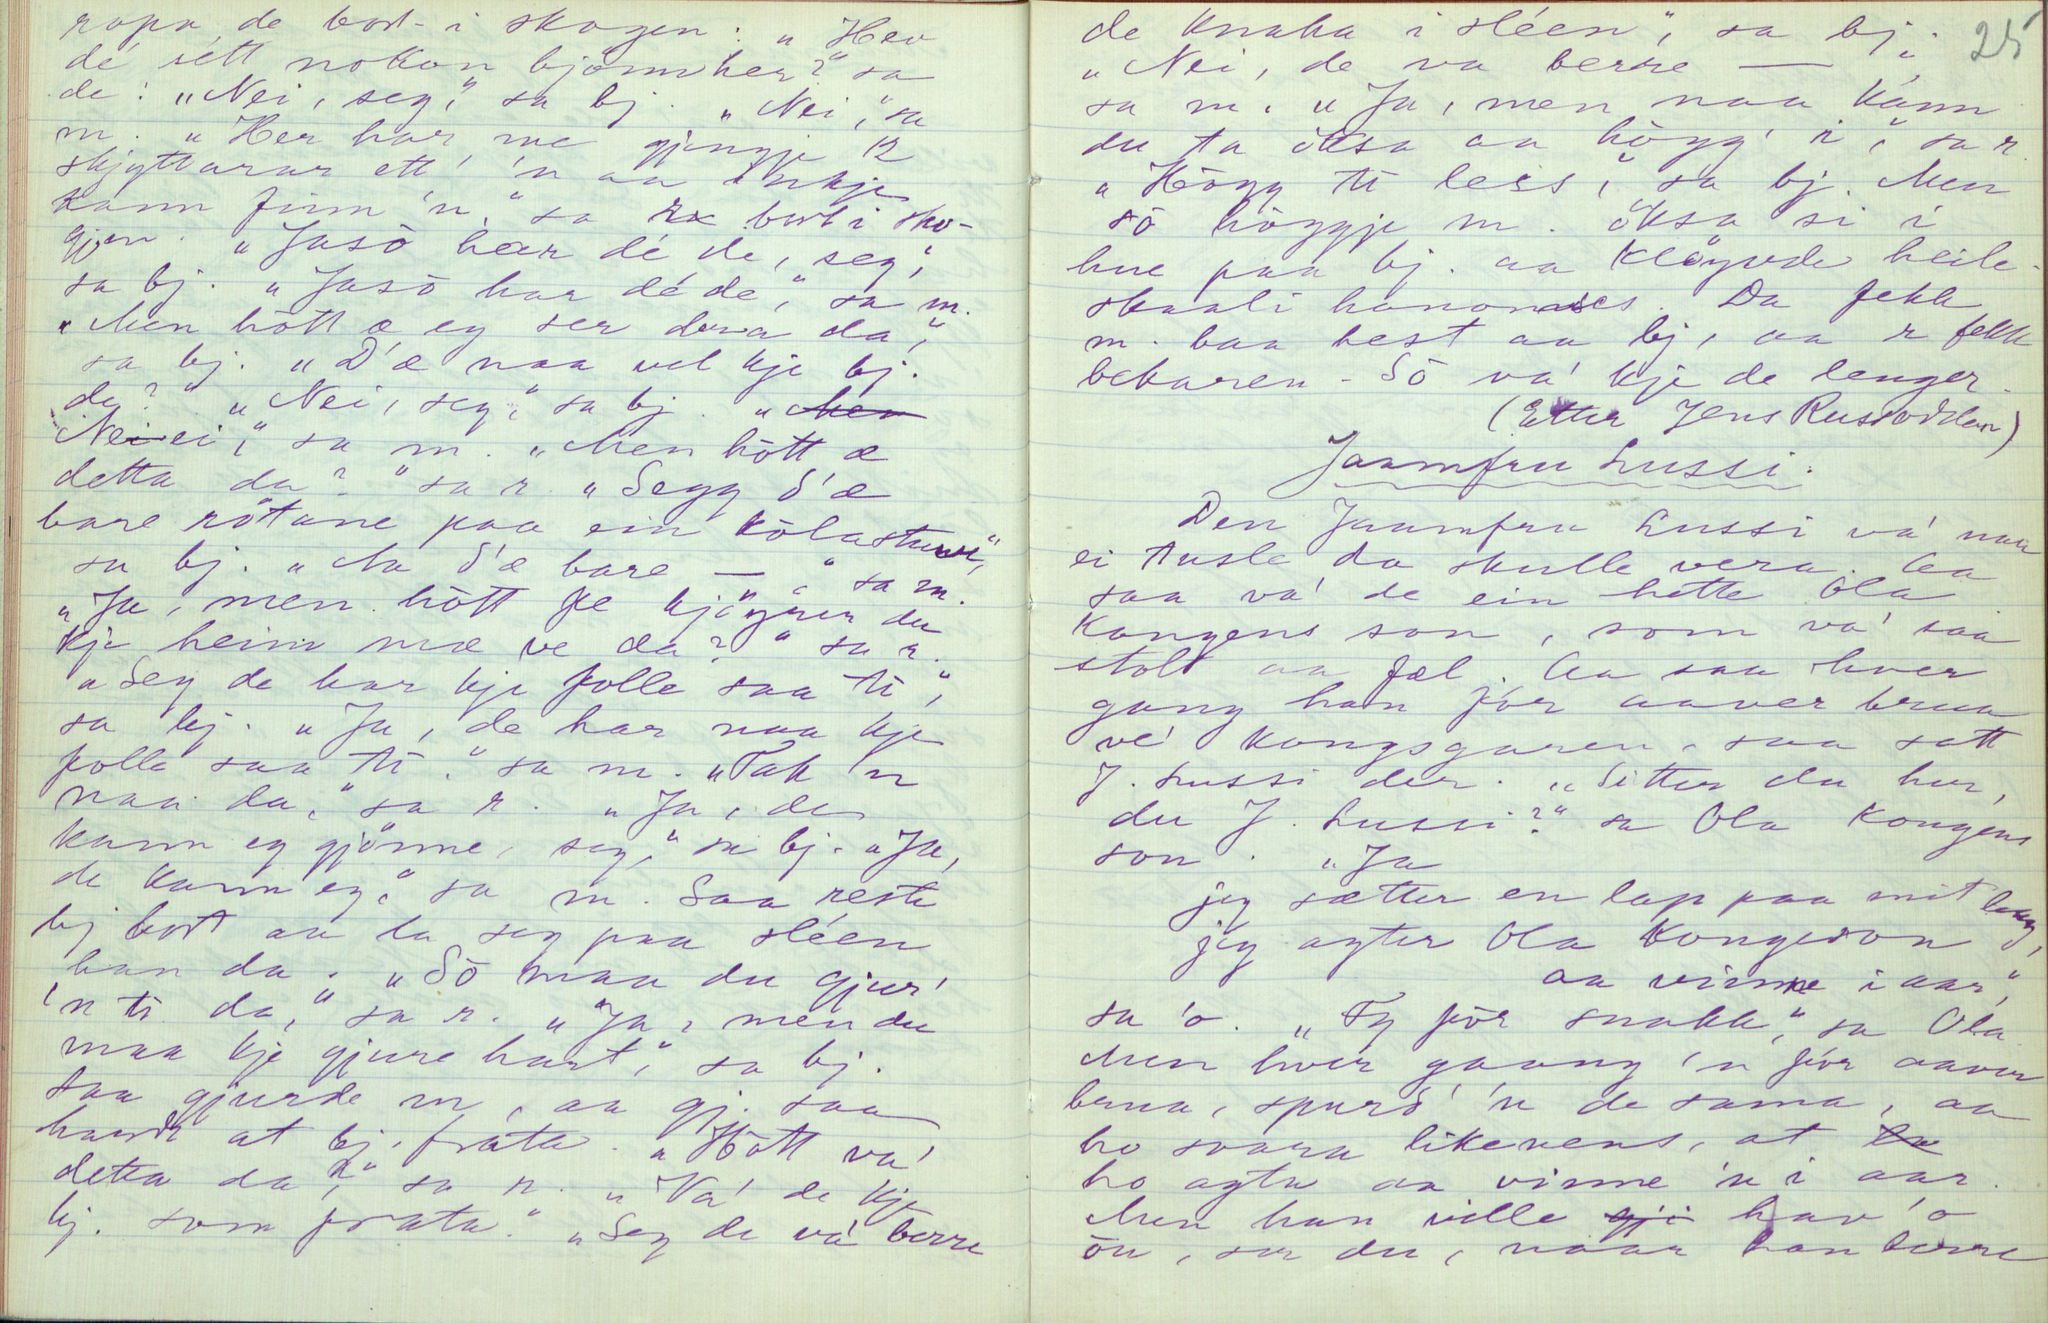 ropa de bort i skogen: „Hev
dé sétt nokon bjönn her?" sa
de: „Nei, seg," sa bj. „Nei," sa
m. „Her har me gjengje 12
skjyttarar ett' 'n aa inkje
kann finn 'n," sa rx bort i sko-
gjen. „Jasò hear dé de, seg,"
sa bj. „Jasò har dé dé," sa m.
„Men hött æ eg ser dera da,"
sa bj. „D'æ naa vel kje bj.
da?" „Nei, seg," sa bj. „Men
Neiei," sa m. „Men hött æ
detta da?" sa r. „Segg d'æ
bare rötane paa ein kòlastuvu,"
sa bj. „Aa d'æ bare —," sa m.
„Ja, men hött fe kjöyrer du
kje heim mæ ve da?" sa r.
„Seg de har kje folle saa ti",
sa bj. „Ja, de har naa kje
folle saa ti." sa m. „Tak 'n
naa da," sa r. „Ja, de
kann eg gjönne, seg," sa bj. „Ja,
de kann eg," sa m. Saa reste
bj bort aa la seg paa sléen
han da. „Sò maa du gjur'
'n ti da," sa r. „Ja, men du
maa kje gjure hart," sa bj.
Saa gjurde m, aa gj. saa
hardt at bj. frata. „Hött va'
detta da?" sa r. „Va' de kje
bj. som frata." „Seg de va' berre
de knaka i sléen", sa bj.
25
„Nei, de va berre —,
sa m. „Ja, men naa kann
du ta öksa aa högg' i," sa r.
„Högg ti leis," sa bj. Men
sò höggje m. öksa si i
hue paa bj. aa klöyvde heile
skaali hanonæs. Da fekk
m. baa hest aa bj, aa r fekk
bekaren. Sò va' kje de lenger.
(Etter Jens Rusvodden)
Jaamfru Lussi.
Den Jaamfru Lussi va' naa
ei tusle da skulle vera. Aa
saa va' de ein hette Ola
Kongens son, som va' saa
stolt aa fæl. Aa saa hver
gang han fór aaver brua
ve' kongsgaren, saa satt
J. Lussi der. „Sitter du her,
du J. Lussi?" sa Ola Kongens
son. „Ja
jeg sætter en lap paa mit laar,
jeg agter Ola Kongeson
aa vinne i aar,"
sa 'o. „Fy fòr snakk," sa Ola
Men hver gaang 'n fór aaver
brua, spurd' 'n de sama, aa
ho svara likevens, at ha
ho agta aa vinne 'n i aar.
Men han ville gji hav' 'o
ōn, ser du, naar han berre